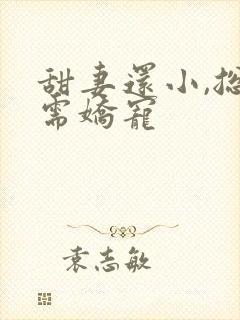 甜妻還小,總
需嬌寵
袁志敏